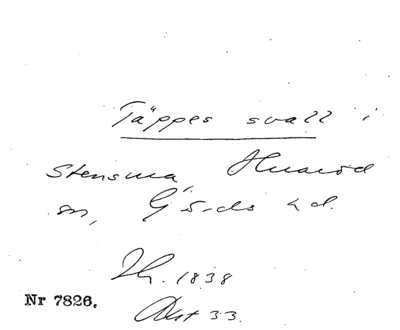 Täppes svall i
Stensma, Huaröd
sn, Gärds hd.
Lh. 1838
Nr 7826. Akt 33.